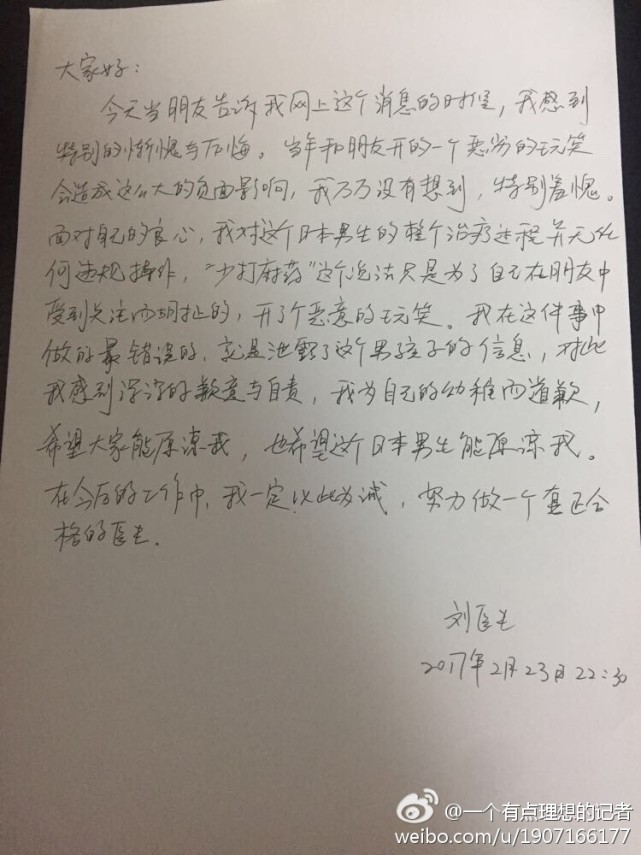 大家好：
今天当朋友告诉我网上这个消息的时候，我感到
特别的惭愧与后悔。当年和朋友开的一个恶劣的玩笑
会造成这么大的负面影响，我万万没有想到，特别羞愧。
面对自己的良心，我对这个日本男生的整个治疗过程并无任
何违规操作，“少打麻药”这个说法只是为了自己在朋友中
受到关注而胡扯的，开了个恶意的玩笑。我在这件事中
做的最错误的，就是泄露了这个男孩子的信息，对此
我感到深深的歉意与自责，我为自己的幼稚而道歉，
希望大家能原谅我，也希望这个日本男生能原谅我。
在今后的工作中，我一定以此为诫，努力做一个真正合
格的医生。
刘医生
2017年2月23日22:30
@一个有点理想的记者
weibo.com/u/1907166177